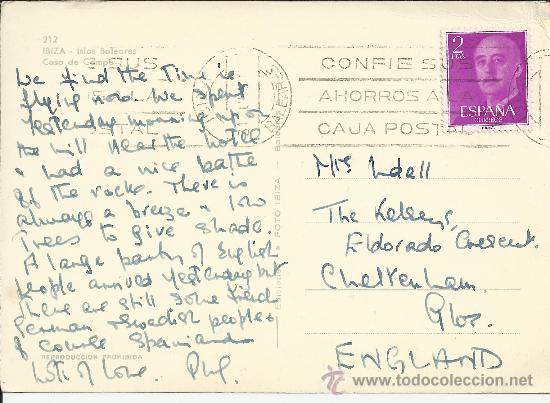 212
IBIZA - Islas Baleares
Casa de Campo
We find the time is
flying now. We spent
yesterday morning up on
the hill near the hotel
& had a nice bathe
off the rocks. There is
always a breeze & low
trees to give shade.
A large party of English
people arrived yesterday but
there are still some
German & Swedish people &
of course Spaniards
Lots of love.
REPRODUCCION PROHIBIDA
FOTO IBIZA
CONFIE SUS
AHORROS A LA
CAJA POSTAL
2
PTAS
ESPAÑA
CORREOS
Mrs Udall
The Kelseys,
Eldorado Crescent.
Cheltenham.
Glos.
ENGLAND
www.todocoleccion.net